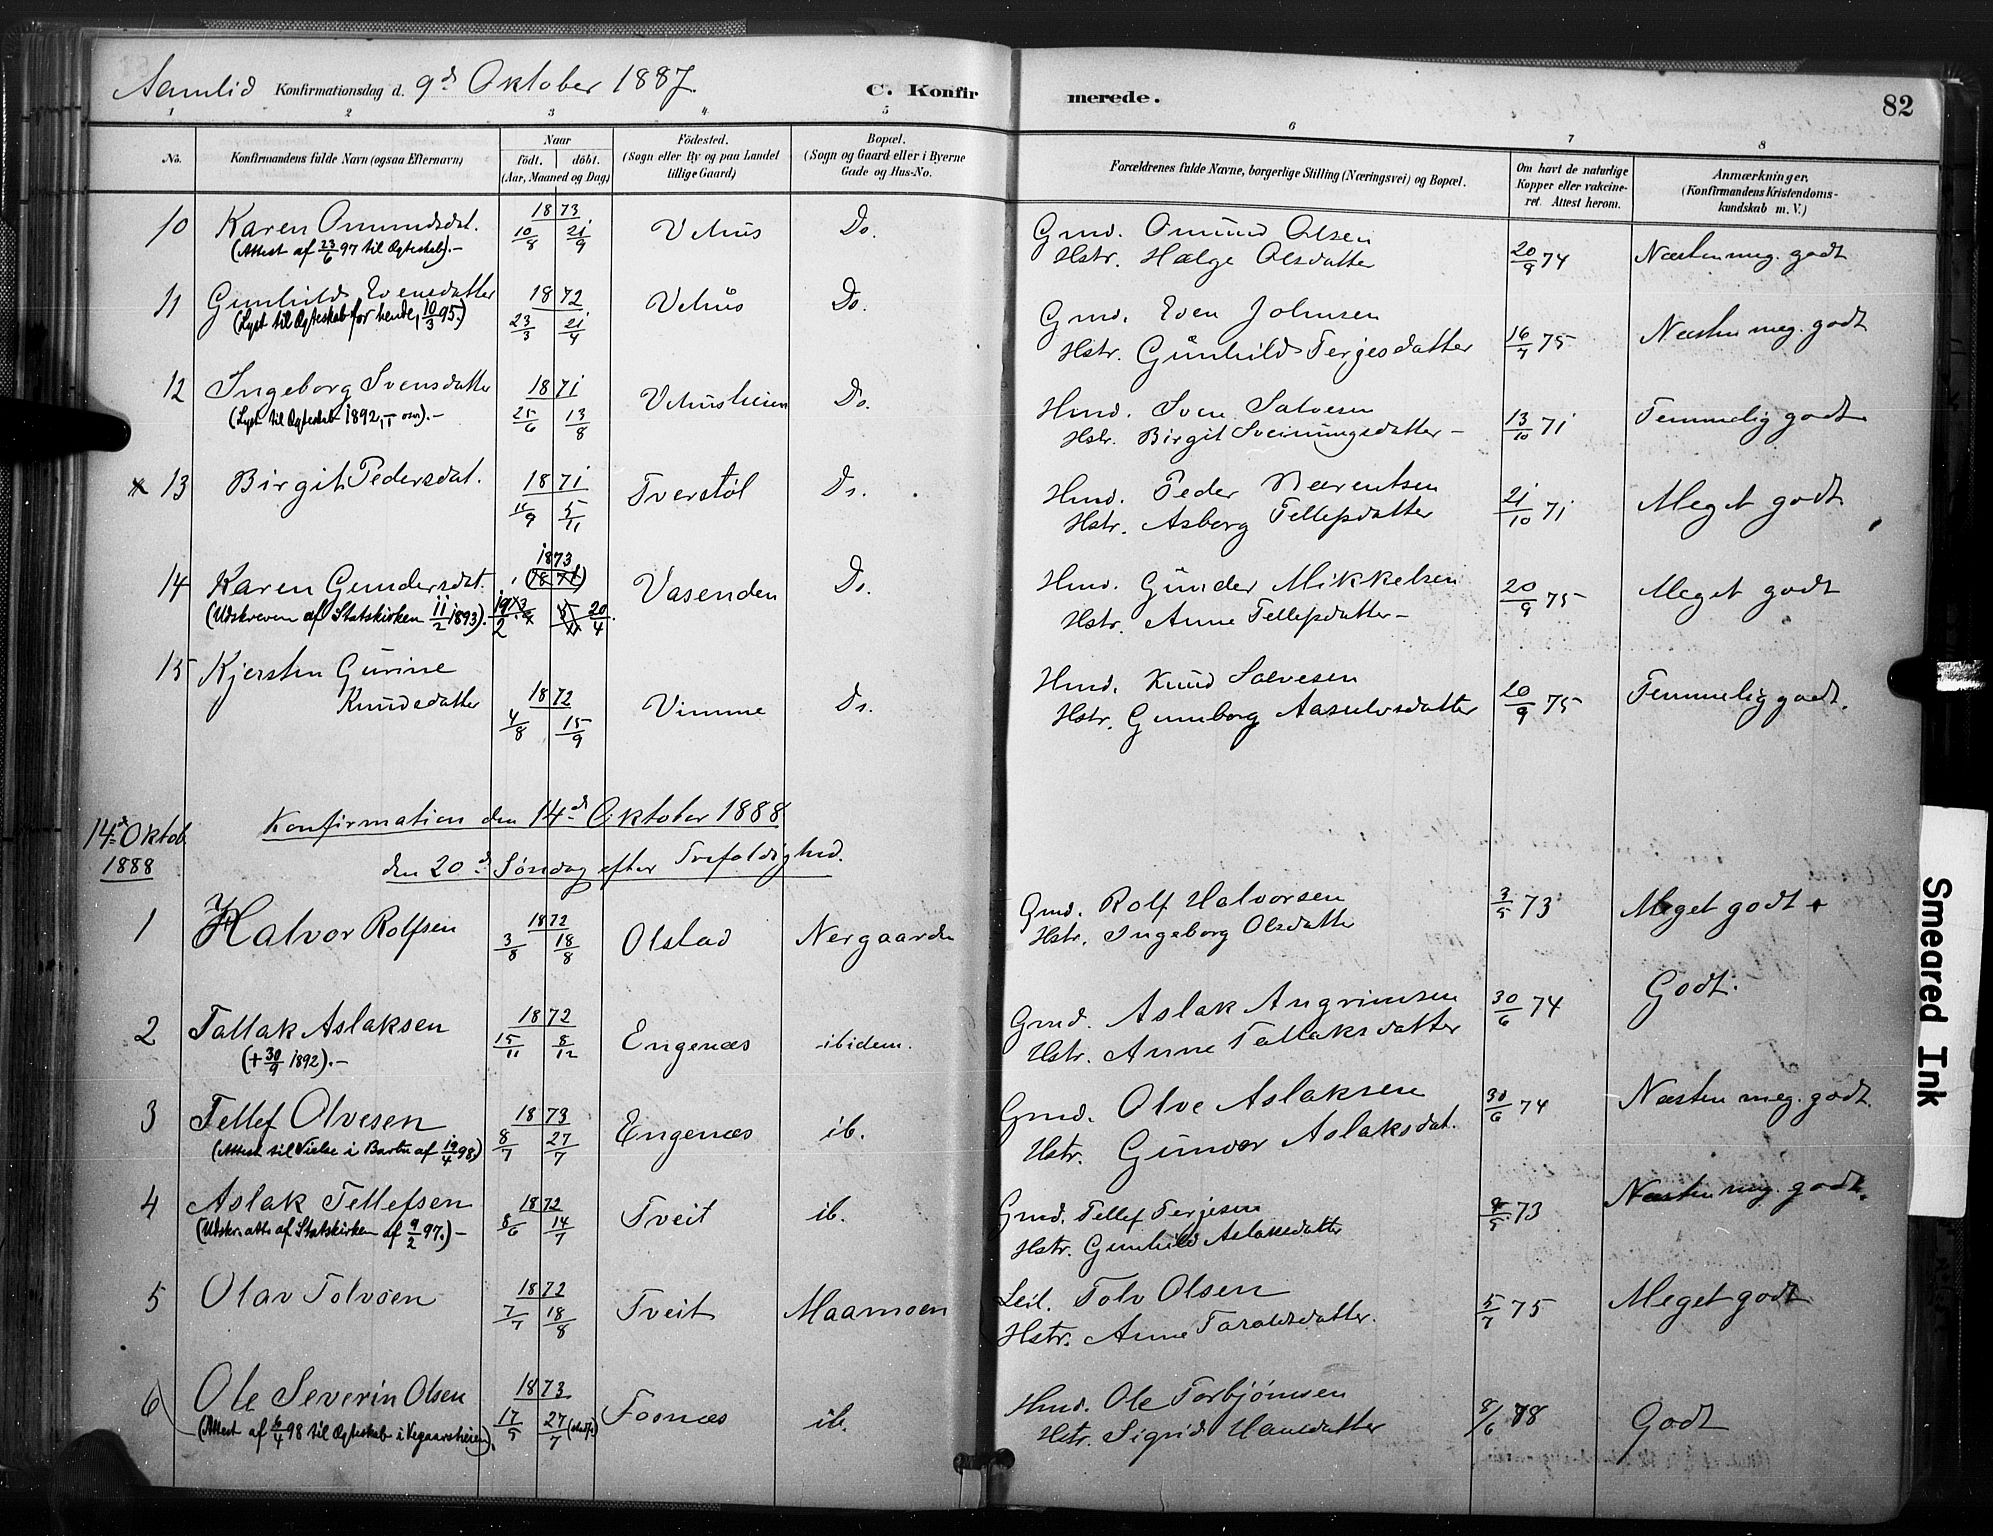 Samlid Konfirmationsdag d. 9de Oktober 1887.
C. Konfirmerede.
82
1 2 3 4 5 6 7 8
No.
Konfirmandens fulde Navn (ogsaa Efternavn)
Naar
födt. döbt.
(Aar, Maaned og Dag)
Födested.
(Sogn eller By og paa Landet
tillige Gaard)
Bopæl.
(Sogn og Gaard eller i Byerne
Gade og Hus-No.
Forældrenes fulde Navne, borgerlige Stilling (Næringsvei) og Bopæl.
Om havt de naturlige
Kopper eller vakcine-
ret. Attest herom.
Anmærkninger.
(Konfirmandens Kristendoms-
kundskab m. V.)
10 Karen Omundsdat. 1873 10/8 21/9 Vehus Do. Gmd. Omund Olsen 20/9 74 Næsten meg. godt
(Attest af 23/6 97 til Ægteskab).- Hstr. Helge Olsdatter
11 Gunhild Evensdatter 1872 23/3 21/4 Vehus Do. Gmd. Even Johnsen 16/7 75 Næsten meg. godt
(Lyst til Ægteskab for hende, 10/3 95.) Hstr. Gunhild Terjesdatter
12 Ingeborg Svensdatter 1871 25/6 13/8 Vehusheien Do. Hmd. Sven Salvesen 13/10 71 Temmelig godt
(Lyst til Ægteskab 1892, ...).- Hstr. Birgit Sveinungsdatter -
13 Birgit Pedersdat. 1871 11/9 5/11 Tverstøl Do. Hmd. Peder Neerentsen 21/10 71 Meget godt
Hstr. Asborg Tellefsdatter
14 Karen Gundersdat. 1873 19/2 20/4 Vasenden Do. Hmd. Gunder Mikkelsen 20/9 75 Meget godt
(Udskreven af Statskirken 11/2 1893). Hstr. Anne Tellefsdatter -
15 Kjersten Gurine Hmd. Knud Salvesen 20/9 75 Temmelig godt.
Knudsdatter 1872 4/8 15/9 Vimme Do. Hstr. Gunborg Aasulvsdatter
14de Oktob. 1888
Konfirmation den 14de Oktober 1888
den 20de Søndag efter Trefoldighed.
1 Halvor Rolfsen 1872 3/8 18/8 Olstad Nergaarden Gmd. Rolf Halvorsen 3/5 73 Meget godt
Hstr. Ingeborg Olsdatter
2 Tallak Aslaksen 1872 15/11 8/12 Engenæs ibidem. Gmd. Aslak Angrimsen 30/6 74 Godt.
(+ 30/9 1892).- Hstr. Anne Tallaksdatter
3 Tellef Olvesen 1873 8/7 27/7 Engenæs ib. Gmd. Olve Aslaksen 30/6 74 Næsten meg. godt.
(Attest til Vielse i Barbu af 19/4 98) Hstr. Gunvor Aslaksdat.
4 Aslak Tellefsen 1872 8/6 14/7 Tveit ib. Gmd. Tellef Terjesen 4/5 73 Næsten meg. godt.
(Udskr. atts af Statskirken af 9/2 97.)- Hstr. Gunhild Aslaksdatter
5 Olav Tolvsen 1872 7/7 18/8 Tveit Maamoen Leil. Tolv Olsen 5/7 75 Meget godt
Hstr. Anne Taraldsdatter.
6 Ole Severin Olsen 1873 17/5 27/7 Fosnæs ib. Hmd. Ole Torbjørnsen 8/6 78 Godt
(Attest af 6/4 98 til Ægteskab i Vegaarsheien). Hstr. Sigrid Hansdatter
Smeared Ink